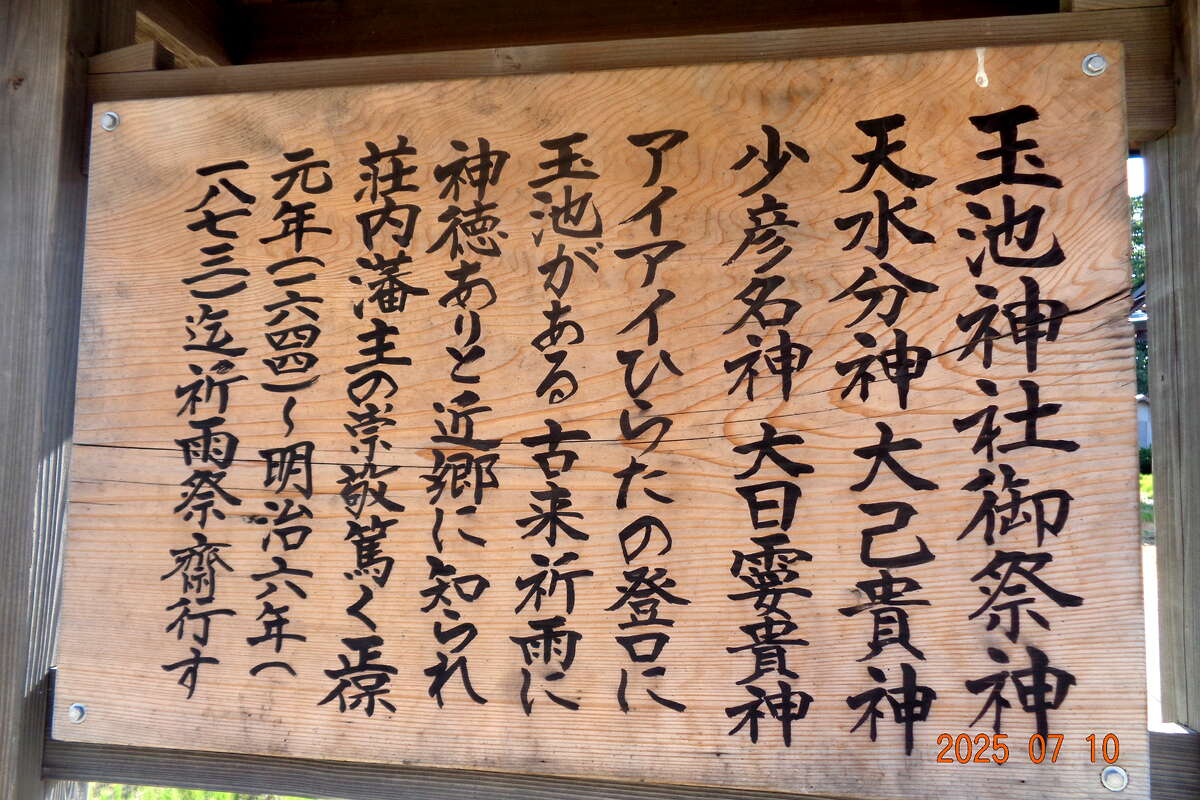 玉池神社御祭神
天水分神 大己貴神
少彦名神 大日孁貴神
アイアイひらたの登口に
玉池がある古来祈雨に
神徳ありと近郷に知られ
荘内藩主の崇敬篤く正保
元年(一六四四)~明治六年(
一八七三)迄祈雨祭齋行す
2025 07 10